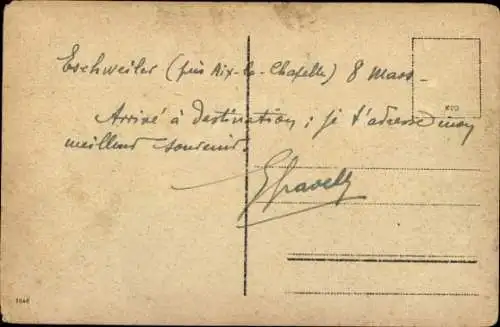 Eschweiler (près Aix-la-Chapelle) 8 Mars -
Arrivé à destination ; je t'adresse mon
meilleur souvenir.
KVD